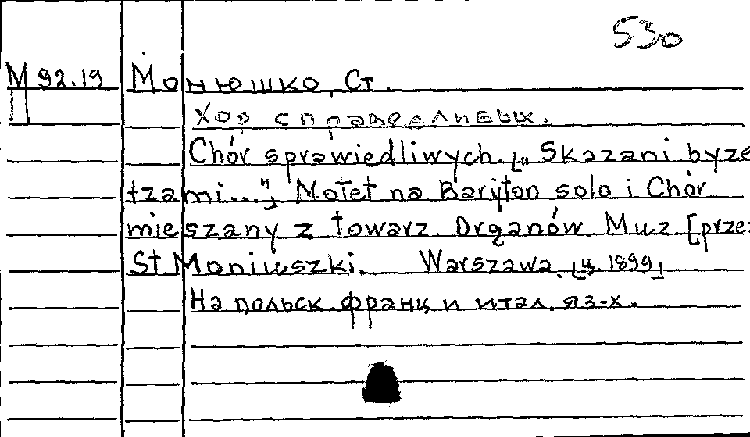 530
М 92.19 Монюшко, Ст.
П
Хор справедливых.
Chór sprawiedliwych. [„Skazani byze
tzami..."] Motet na Baryton solo i Chór
mieszany z towarz. Organów. Muz [prze
St Moniuszki. Warszawa. [ц. 1899]
На польск. франц и итал. яз-х.